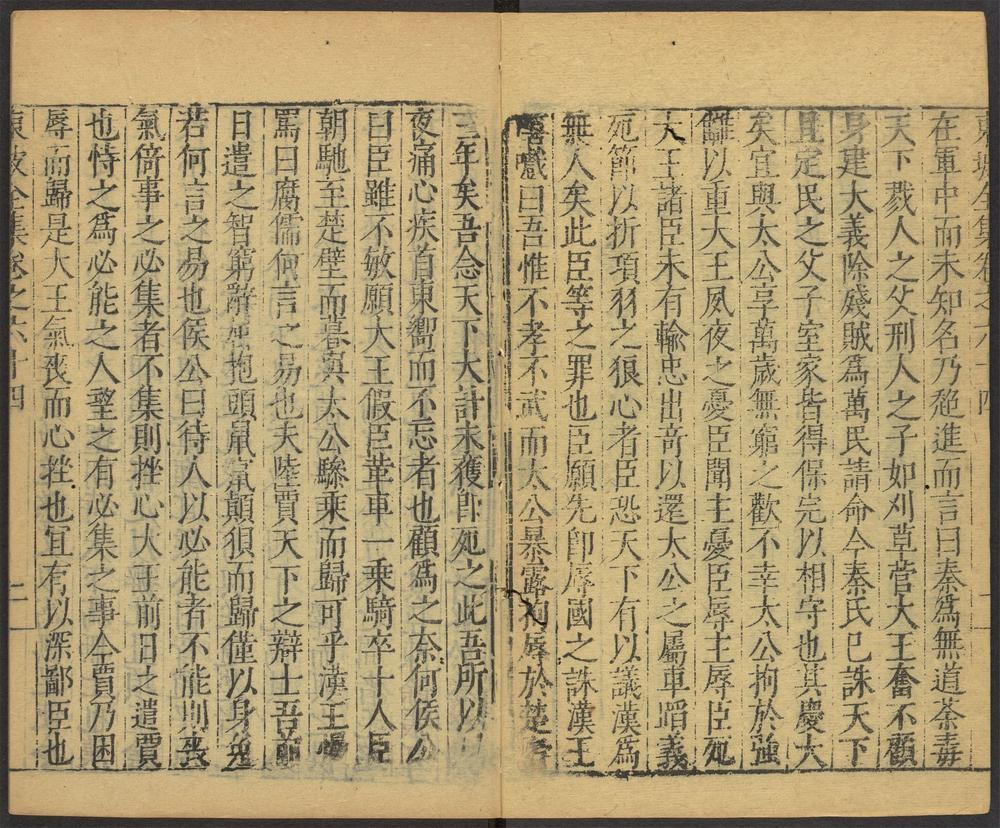 東坡全集卷之六十四
在軍中而未知名乃趨進而言曰秦爲無道荼毒
天下戮人之父刑人之子如刈草菅大王奮不顧
身建大義除殘賊爲萬民請命今秦氏已誅天下
且定民之父子室家皆得保完以相守也其慶大
矣宜與太公享萬歲無窮之歡不幸太公拘於強
讎以重大王夙夜之憂臣聞主憂臣辱主辱臣死
大王諸臣未有輸忠出竒以還太公之屬車蹈義
死節以折項羽之狼心者臣恐天下有以議漢爲
無人矣此臣等之罪也臣願先卽辱國之誅漢王
嘻嚱曰吾惟不孝不武而太公暴露拘辱於楚者
三年矣吾念天下大計未獲卽死之此吾所以
夜痛心疾首東嚮而不忘者也顧爲之奈何侯公
曰臣雖不敏願大王假臣革車一乗騎卒十人臣
朝馳至楚壁而暮與太公驂乗而歸可乎漢王
罵曰腐儒何言之易也夫陸賈天下之辯士吾前
日遣之智窮辭屈抱頭鼠竄顛狽而歸僅以身免
若何言之易也侯公曰待人以必能者不能則喪
氣倚事之必集者不集則挫心大王前日之遣賈
也恃之爲必能之人望之有必集之事今賈乃困
辱而歸是大王氣喪而心挫也宜有以深鄙臣也
東坡全集卷之六十四 二